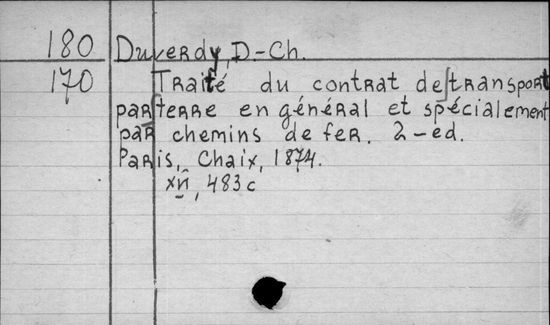 180 Duverdy, D.-Ch.
170 Traité du contrat de transport
par terre en général et spécialement
par chemins de fer. 2-ed.
Paris, Chaix, 1874.
483 c